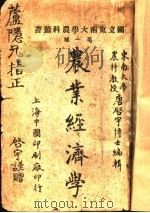 國立東南大學農科叢書
第種
東南大學
農科教授唐啓宇博士編輯
農業經濟學
上海中國印刷廠印行
蘆隱兄指正
啓宇謹贈